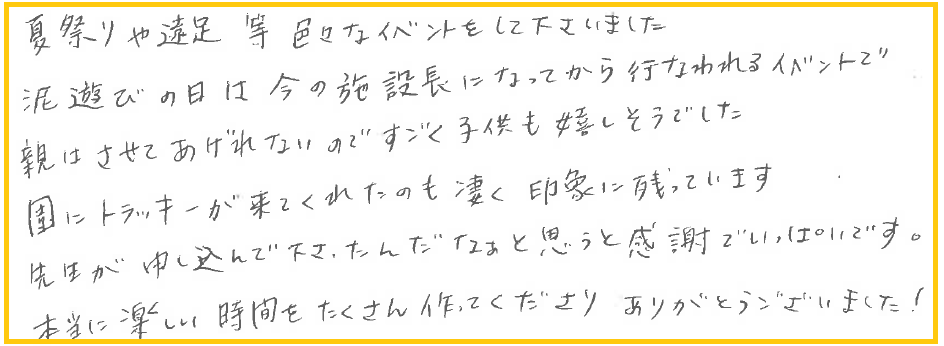 夏祭りや遠足 等 色々なイベントをして下さいました
泥遊びの日は今の施設長になってから行なわれるイベントで
親はさせてあげれないのですごく子供も嬉しそうでした
園にトラッキーが来てくれたのも凄く印象に残っています
先生が申し込んで下さったんだなぁと思うと感謝でいっぱいです。
本当に楽しい時間をたくさん作ってくださり ありがとうございました!